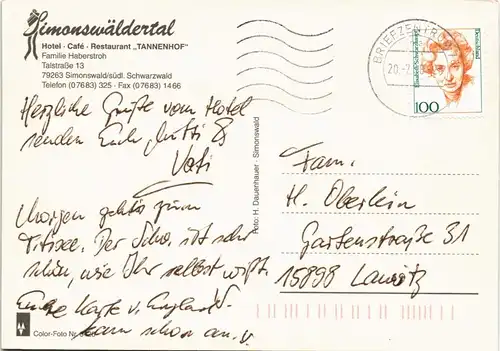 Simonswäldertal
Hotel · Café · Restaurant „TANNENHOF"
Familie Haberstroh
Talstraße 13
79263 Simonswald/südl. Schwarzwald
Telefon (07683) 325 · Fax (07683) 1466
Herzliche Grüße vom Hotel
senden Euch Mutti &
Vati
Morgen gehts zum
Titisee. Der Schw. ist sehr
schön, wie Ihr selbst wißt.
Eure Karte v. England
kam schon an. V.
Color-Foto Nr.
Foto: H. Dauenhauer · Simonswald
BRIEFZENTRUM
20.-7.
Deutschland
Elisabeth Schwarzhaupt
100
Fam.
H. Oberlein
Gartenstraße 31
15898 Lawitz